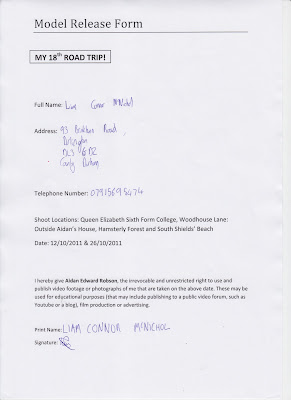 Model Release Form
MY 18th ROAD TRIP!
Full Name: Liam Connor McNichol
Address: 93 Road
Darlington
DL3
County Durham
Telephone Number:
Shoot Locations: Queen Elizabeth Sixth Form College, Woodhouse Lane:
Outside Aidan's House, Hamsterly Forest and South Shields' Beach
Date: 12/10/2011 & 26/10/2011
I hereby give Aidan Edward Robson, the irrevocable and unrestricted right to use and
publish video footage or photographs of me that are taken on the above date. These may be
used for educational purposes (that may include publishing to a public video forum, such as
Youtube or a blog), film production or advertising.
Print Name: LIAM CONNOR McNICHOL
Signature: